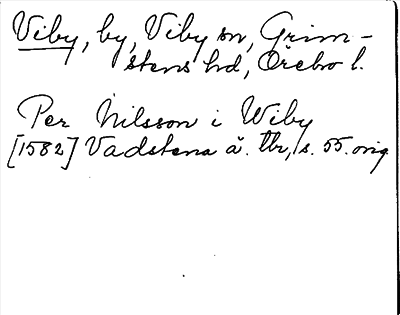 Viby, by, Viby sn, Grim-
stens hd, Örebro l.
Per Nilsson i Wiby
[1582] Vadstena ä. tbr, s. 55. orig.